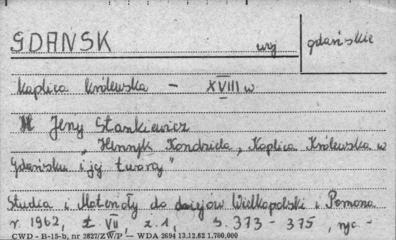 GDAŃSK woj gdańskie
Kaplica Królewska – XVIII w
Jerzy Stankiewicz
„Henryk Kondziela, Kaplica Królewska w
Gdańsku i jej twórcy"
Studia i Materiały do dziejów Wielkopolski i Pomorza
r. 1962, t. VII, z. 1, s. 373 - 375, ryc -
CWD - B-15-b, nr 2827/ZW/P — WDA 2694 13.12.62 1.700.000